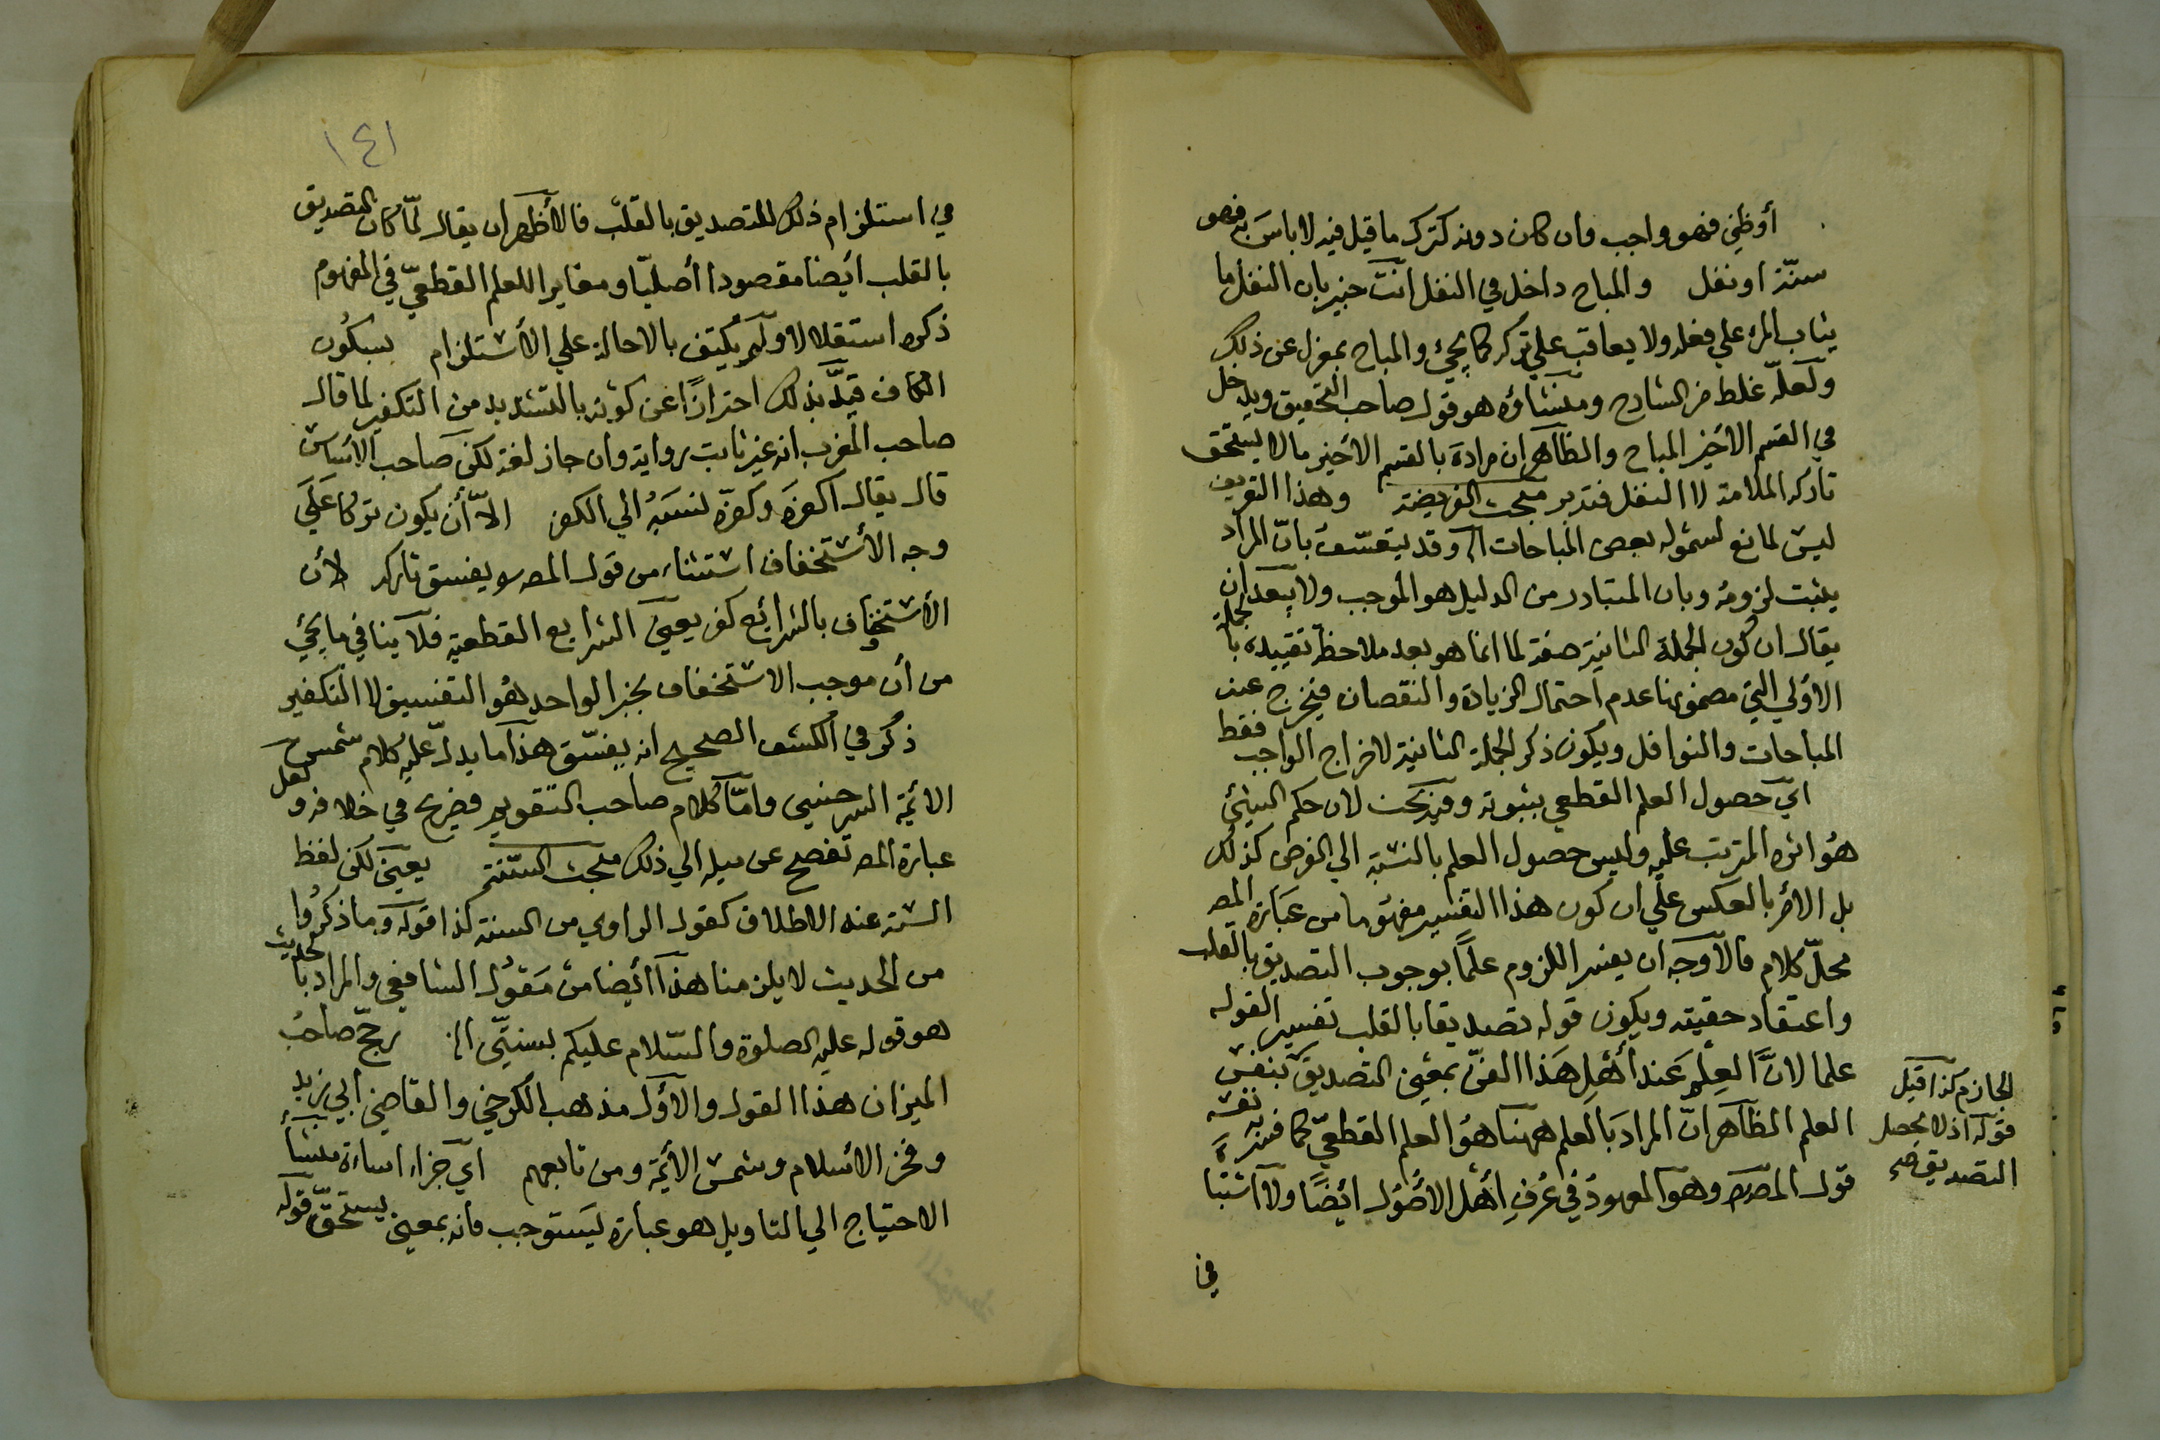 أوظني فهو واجب وان كان دونه كترك ما قيل فيه لا باسَ به فهو
سنّة او نفل والمباح داخل في النفل انت خبير بان النفل ما
يثاب المرء علي فعله ولا يعاقب علي تركه كما يجيء والمباح بمعزل عن ذلك
ولعلّه غلط من الشارح ومنشاؤه هو قول صاحب التحقيق ويدخل
في القسم الاخير المباح والظاهر ان مراده بالقسم الاخير ما لا يستحق
تاركه الملامة لا النفل فتدبر مبحث الفريضة وهذا التعريف
ليس لمانع لشموله بعض المباحات الخ وقد يتعسّف بانّ المراد
يثبت لزومه وبان المتبادر من الدليل هو الموجب ولا يبعد ان
يقال ان كون الجملة الثانية صفة لما انما هو بعد ملاحظة تقييده بالجملة
الاولي التي مضمونها عدم احتمال الزيادة والنقصان فيخرج عنه
المباحات والنوافل ويكون ذكر الجملة الثانية لاخراج الواجب فقط
اي حصول العلم القطعي بثبوته وفيه بحث لان حكم الشيئ
هُو اثره المترتب عليه وليس حصول العلم بالنسبة الي الفرض كذلك
بل الأمر بالعكس علي ان كون هذا التفسير مفهوما من عبارة المصـ
محلّ كلام فالاوجه ان يفسر اللزوم علمًا بوجوب التصديق بالقلب
واعتقاد حقيته ويكون قوله تصديقا بالقلب تفسير القوله
علما لانَّ العِلم عَند أهلِ هَذا الفنّ بمعني التصديق بنفس
العلم الظاهر انّ المراد بالعلم ههنا هُو العلم القطعيّ كما فسّره به نفسه
قول المصـ وهو المعهودُ في عُرفِ أهل الأصُول ايضًا ولا اشتبا
الجازم كذا قيل
قوله اذ لا يحصل
التصديق صح
في
١٤١
في استلزام ذلك للتصديق بالقلب فالأظهر ان يقال لمّا كان التصديق
بالقلب ايضا مقصودا أصليّا ومغايرا للعلم القطعيّ في المفهوم
ذكره استقلالا ولم يكتف بالاحالة علي الأستلزام بسكُون
الكاف قيّد بذلك احترازًا عن كونه بالتشديد من التكفير لما قال
صاحب المغرب انه غير ثابت رواية وان جاز لغة لكن صاحب الأساس
قال يقال اكفرَه وكفرّه نسَبَهُ الي الكفر الاّ أن يكون تركا علي
وجه الأستخفاف استثناء من قول المصـ ويفسق تاركه لأن
الأستخفاف بالشرائع كفر يعني الشرايع القطعية فلا ينافي ما يجئ
من أن موجب الاستخفاف بخبر الواحد هُو التفسيق لا التكفير
ذكر في الكشف الصحيح انه يفسّق هذا ما يدلّ عليه كلام شمس
الائمة السرخسي وامّا كلام صاحب التقويم فصريح في خلافه ولعل
عبارة المصـ تفصح عن ميله الي ذلك مبحث السّنة يعني لكن لفظ
السنة عند الاطلاق كقول الراوي من السنة كذا قوله وما ذكرُوا
من الحديث لا يلزمنا هذا ايضا من مَقوُل الشافعي والمراد بالحديث
هو قوله عليه الصلوة والسّلام عليكم بسنتي الخ رجّح صاحبُ
الميزان هذا القول والاوّل مذهب الكرخي والقاضي ابي زيد
وفخر الاسلام وشمس الأيمّة ومن تابعهم اي جزاء اساءة منشأ
الاحتياج الي التاويل هو عبارة يَستوجب فانه بمعني يستحقّ قوله